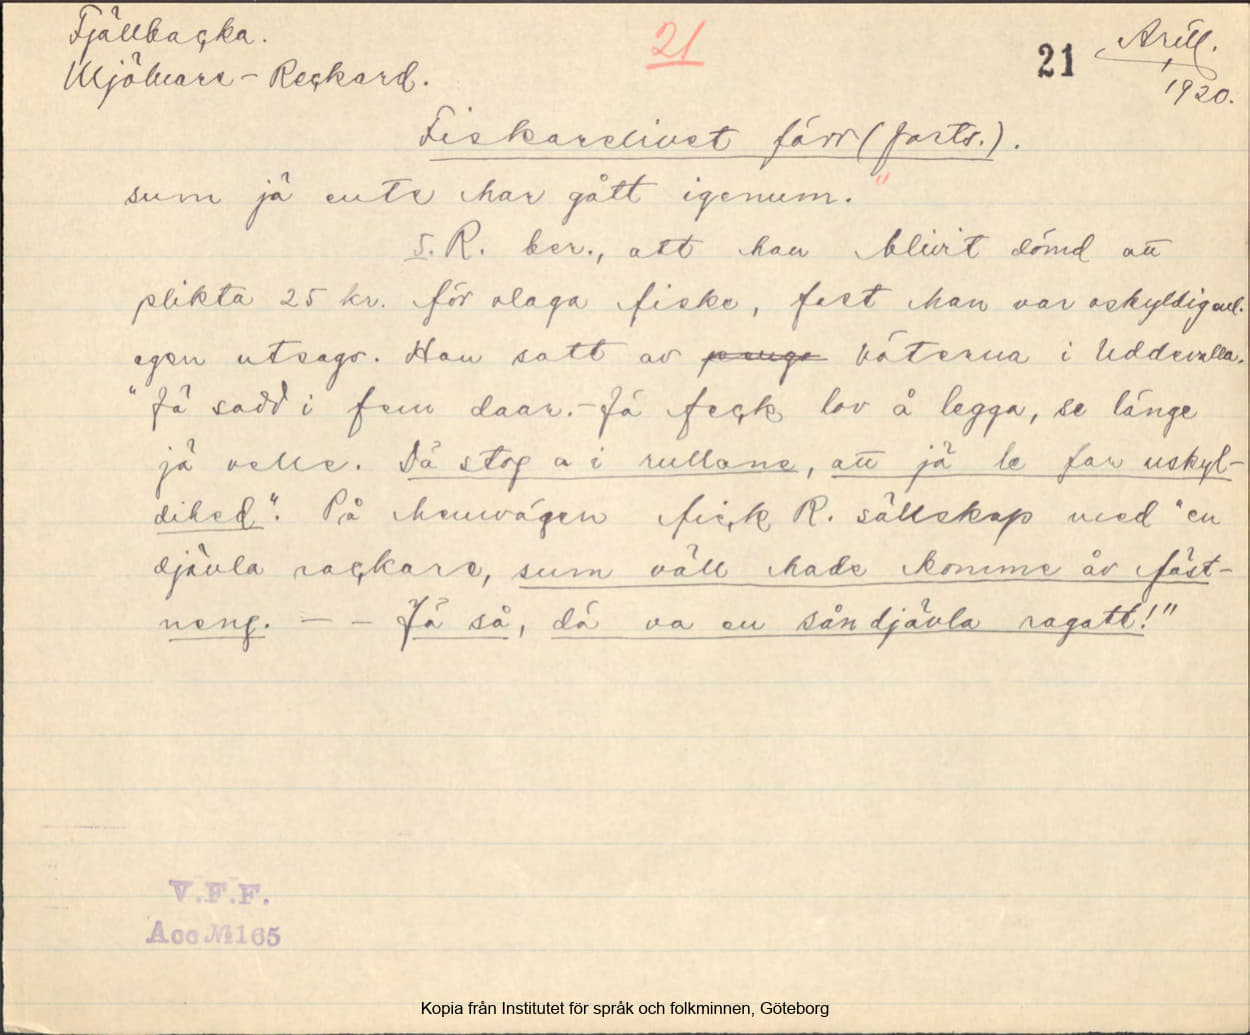 Fjällbacka.
Mjölnare-Reckard.
21
21
Arill.
1920.
Fiskarelivet förr (forts.).
sum jä ente har gått igenum."
S. R. ber., att han blivit dömd att
plikta 25 kr. för olaga fiske, fast han var oskyldig enl.
egen utsago. Han satt av böterna i Uddevalla.
"Jä sadd i fem daar. - Jä feck lov å legga, se länge
jä velle. Dä stog a i rullane, att jä le far uskyl-
dihed". På hemvägen fick R. sällskap med "en
djävla rackare, sum väll hade komme åv fäst-
neng. - - Jä så, dä va en sån djävla ragatt!"
V.F.F.
Acc №165
Kopia från Institutet för språk och folkminnen, Göteborg